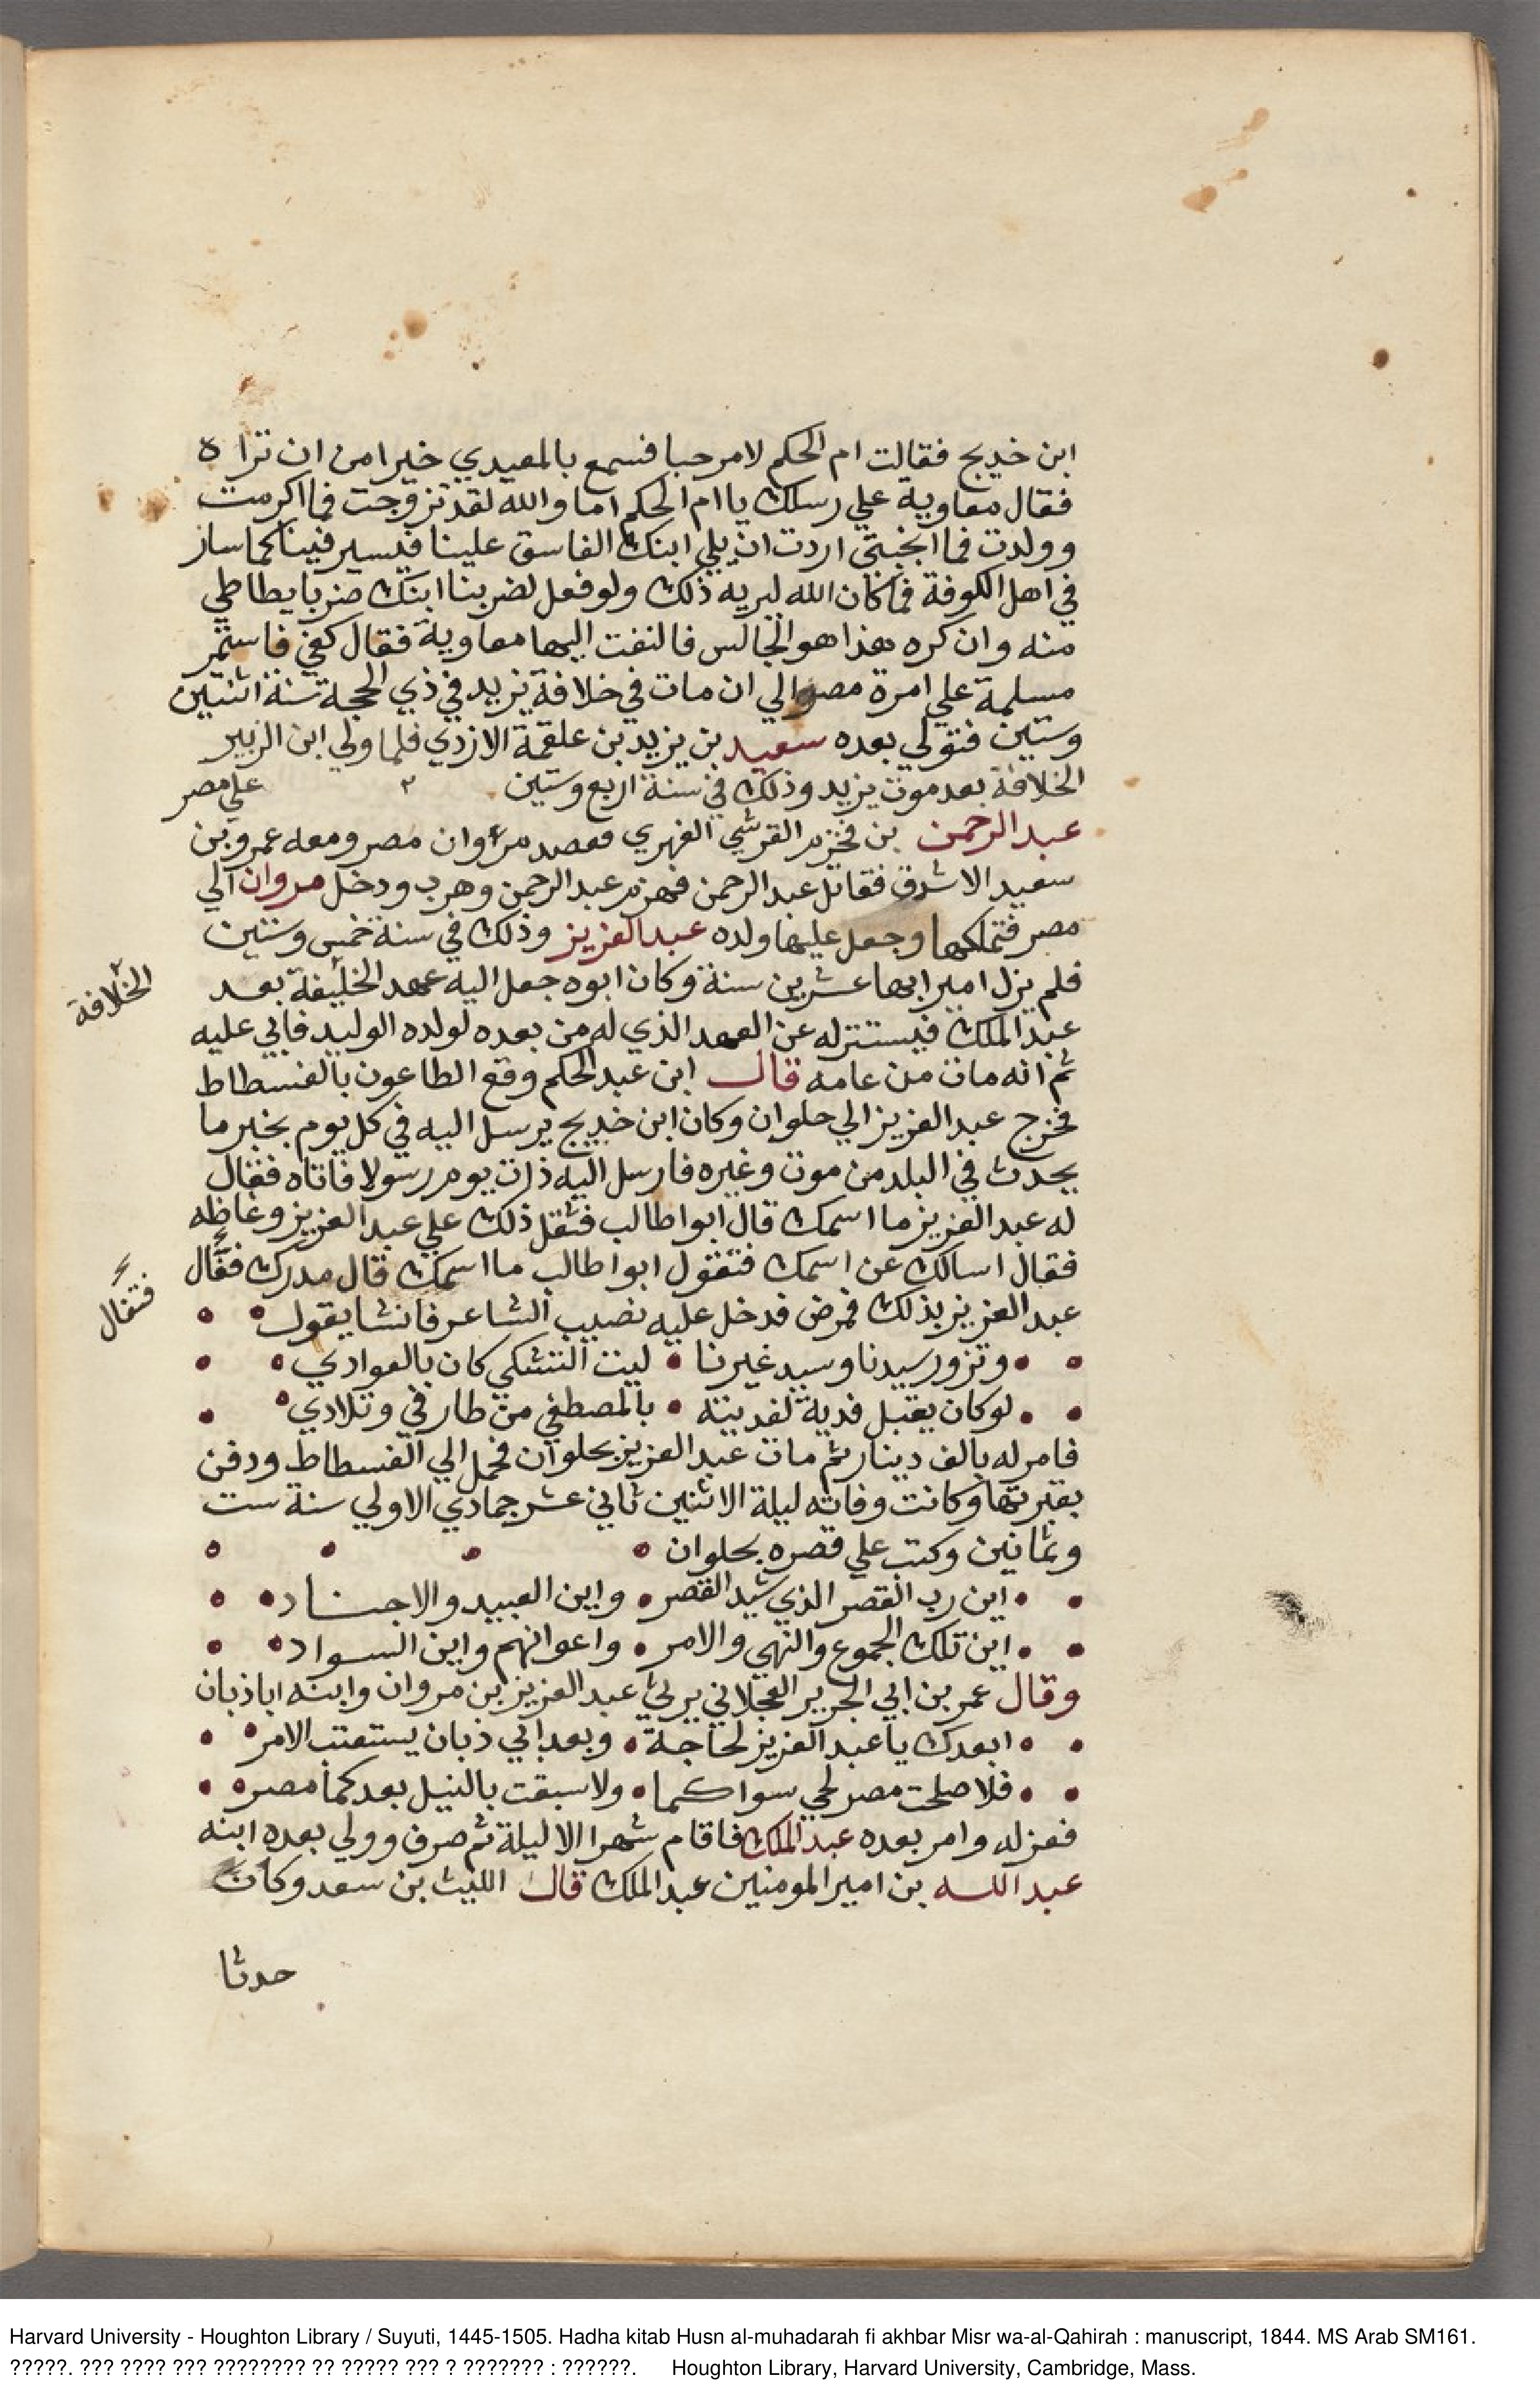 ابن خديج فقالت ام الحكم لامرحبا فسمع بالمعيدي خيرا من ان تراه
فقال معاوية علي رسلك ياام الحكم اما والله لقد تزوجت فما اكرمت
وولدت فما انجبتي اردت ان يلي ابنك الفاسق علينا فيسير فينا كما سار
في اهل الكوفة فما كان الله ليريه ذلك ولو فعل لضربنا ابنك ضربا يطاطي
منه وان كره هذا هو الجالس فالتفت اليها معاوية فقال كفي فاستمر
مسلمة علي امرة مصر الي ان مات في خلافة يزيد في ذي الحجة سنة اثنتين
وستين فتولي بعده سعيد بن يزيد بن علقمة الازدي فلما ولي ابن الزبير
الخلافة بعد موت يزيد وذلك في سنة اربع وستين علي مصر
عبد الرحمن بن فخزم القرشي الفهري فقصد مروان مصر ومعه عمرو بن
سعيد الاشدق فقاتل عبد الرحمن فهزم عبد الرحمن وهرب ودخل مروان الي
مصر فتملكها وجعل عليها ولده عبد العزيز وذلك في سنة خمس وستين
فلم يزل اميرا بها عشرين سنة وكان ابوه جعل اليه عهد الخليفة بعد
الخلافة
عبد الملك فيستنزله عن العهد الذي له من بعده لولده الوليد فابي عليه
ثم انه مات من عامه قال ابن عبد الحكم وقع الطاعون بالفسطاط
فخرج عبد العزيز الي حلوان وكان ابن خديج يرسل اليه في كل يوم بخبر ما
يحدث في البلد من موت وغيره فارسل اليه ذات يوم رسولا فاتاه فقال
له عبد العزيز ما اسمك قال ابوا طالب فثقل ذلك علي عبد العزيز وغاظه
فقال اسالك عن اسمك فتقول ابوا طالب ما اسمك قال مدرك فقال
فتفال
عبد العزيز بذلك فمرض فدخل عليه نصيب الشاعر فانشا يقول
ونزور سيدنا وسيد غيرنا • ليت التشكي كان بالعوادي
لو كان يقبل فدية لفديته • بالمصطفي من طارفي وتلادي
فامر له بالف دينار ثم مات عبد العزيز بحلوان فحمل الي الفسطاط ودفن
بقبرتها وكانت وفاته ليلة الاثنين ثاني عشر جمادي الاولي سنة ست
وثمانين وكتب علي قصره بحلوان
اين رب القصر الذي شيد القصر • واين العبيد والاجناد
اين تلك الجموع والنهي والامر • واعوانهم واين السواد
وقال عمر بن ابي الجرير العجلاني يرثي عبد العزيز بن مروان وابنه اباذبان
ابعدك يا عبد العزيز لحاجة • وبعد ابي ذبان يستعتب الامر
فلا صلحت مصر لحي سواكما • ولا سبقت بالنيل بعدكما مصر
فعزله وامر بعده عبد الملك فاقام شهرا الا ليلة ثم صرف وولي بعده ابنه
عبد الله بن امير المومنين عبد الملك قال الليث بن سعد وكان
حدثا
Harvard University - Houghton Library / Suyuti, 1445-1505. Hadha kitab Husn al-muhadarah fi akhbar Misr wa-al-Qahirah : manuscript, 1844. MS Arab SM161.
?????. ??? ???? ??? ???????? ?? ????? ??? ? ??????? : ??????. Houghton Library, Harvard University, Cambridge, Mass.